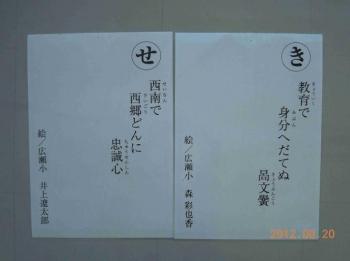 き
教育で
身分へだてぬ
咼文黌
絵/広瀬小 森 彩也香
せ
西南で
西郷どんに
忠誠心
絵/広瀬小 井上遼太郎
2012.08.20